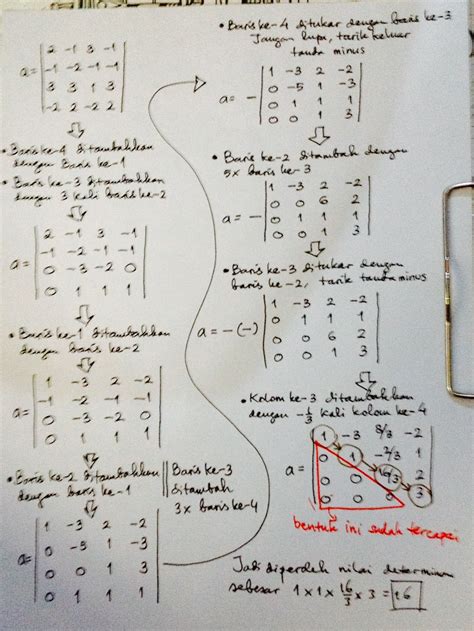 a= | 2 -1 3 -1 |
| -1 -2 -1 -1 |
| 3 3 1 3 |
| -2 2 -2 2 |
• Baris ke-4 ditambahkan
dengan Baris ke-1
• Baris ke-3 ditambahkan
dengan 3 kali baris ke-2
a= | 2 -1 3 -1 |
| -1 -2 -1 -1 |
| 0 -3 -2 0 |
| 0 1 1 1 |
• Baris ke-1 ditambahkan
dengan baris ke-2
a= | 1 -3 2 -2 |
| -1 -2 -1 -1 |
| 0 -3 -2 0 |
| 0 1 1 1 |
• Baris ke-2 ditambahkan
dengan baris ke-1
Baris ke-3
ditambah
3x baris ke-4
a= | 1 -3 2 -2 |
| 0 -5 1 -3 |
| 0 0 1 3 |
| 0 1 1 1 |
• Baris ke-4 ditukar dengan baris ke-3
Jangan lupa, tarik keluar
tanda minus
a= - | 1 -3 2 -2 |
| 0 -5 1 -3 |
| 0 1 1 1 |
| 0 0 1 3 |
• Baris ke-2 ditambah dengan
5x baris ke-3
a= - | 1 -3 2 -2 |
| 0 0 6 2 |
| 0 1 1 1 |
| 0 0 1 3 |
• Baris ke-3 ditukar dengan
baris ke-2, tarik tanda minus
a= -(-) | 1 -3 2 -2 |
| 0 1 1 1 |
| 0 0 6 2 |
| 0 0 1 3 |
• Kolom ke-3 ditambahkan
dengan -1/3 kali kolom ke-4
a= | 1 -3 8/3 -2 |
| 0 1 -2/3 1 |
| 0 0 16/3 2 |
| 0 0 0 3 |
bentuk ini sudah tercapai
Jadi diperoleh nilai determinan
sebesar 1 x 1 x 16/3 x 3 = 16